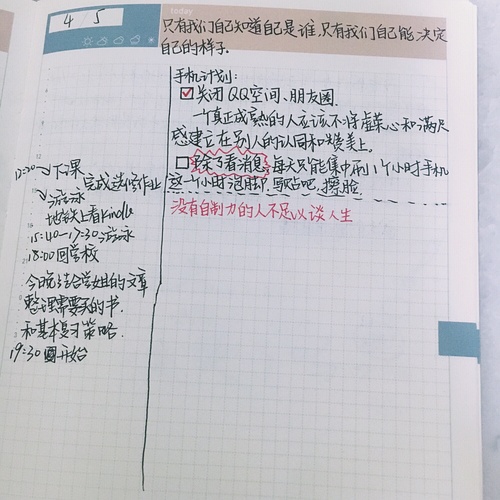 4/5
today
只有我们自己知道自己是谁,只有我们自己能决定
自己的样子.
手机计划:
关闭QQ空间、朋友圈.
一个真正成熟的人应该不将虚荣心和满足
感建立在别人的认同和赞美上。
除了看消息,每天只能集中刷1个小时手机
这一个小时泡脚,B站吧,擦脸
没有自制力的人不足以谈人生
12:30~下课
完成选修作业
~游泳
地铁上看Kindle
15:40-17:30游泳
18:00回学校
今晚结给学姐的文章
整理需要的书.
和基本复习策略.
19:30开始